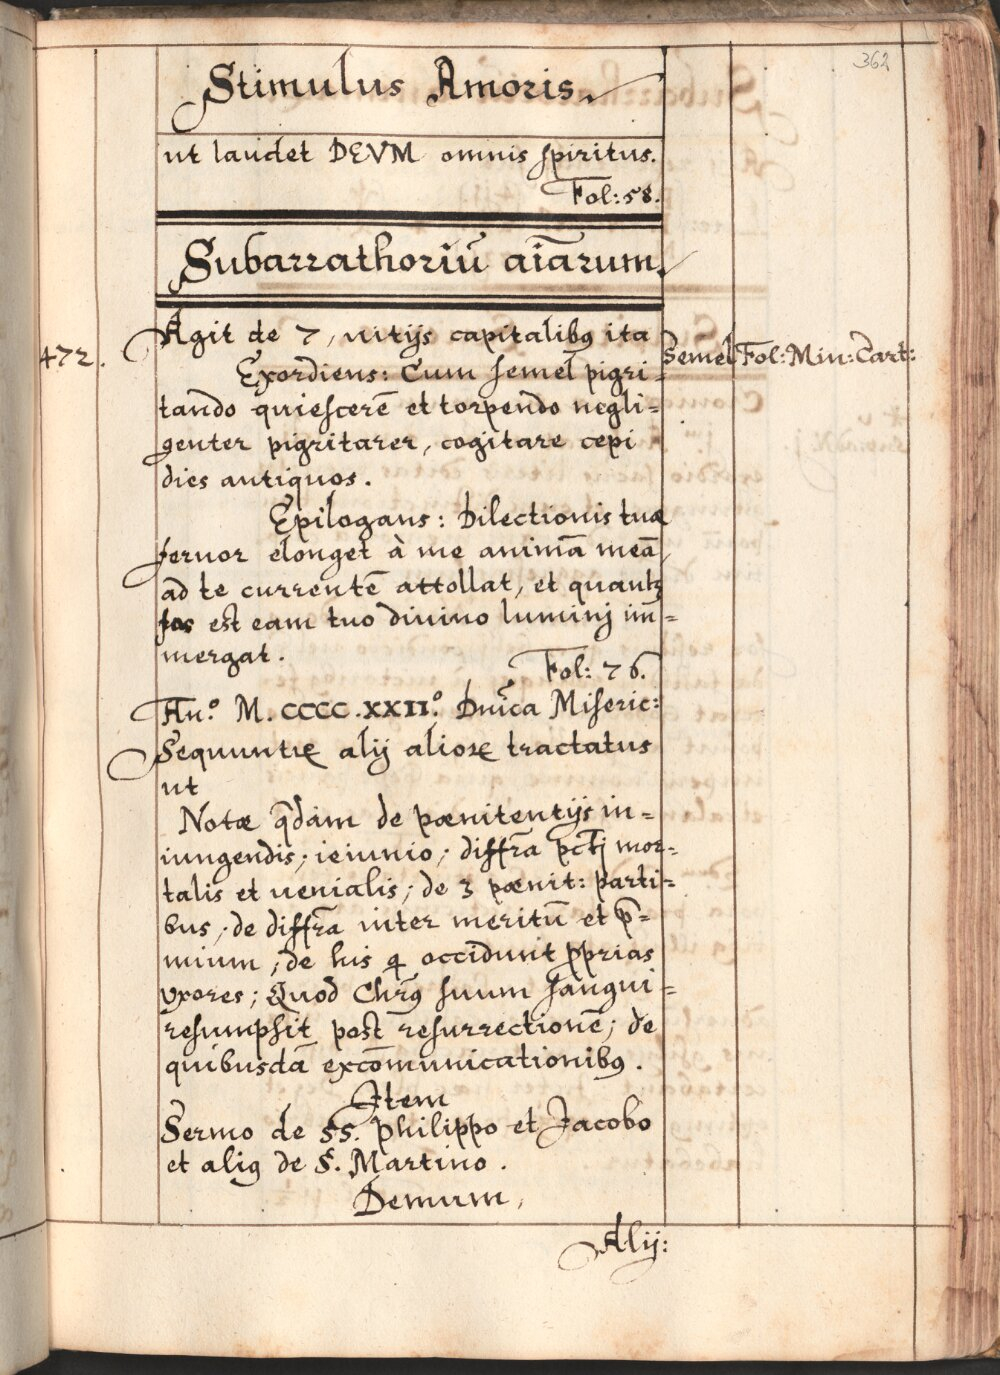 362
Stimulus Amoris.
ut laudet DEVM omnis spiritus.
Fol: 58.
Subarrathoriũ aīarum.
472.
Agit de 7, uitijs capitalibꝯ ita
Semel Fol: Min: Cart:
Exordiens: Cum semel pigri=
tando quiescerē et torpendo negli=
genter pigritarer, cogitare cepi
dies antiquos.
Epilogans: Dilectionis tuæ
feruor elonget à me animā meā,
ad te currentē attollat, et quantꝫ
fas est eam tuo diuino luminj im=
mergat.
Fol: 76.
An.º M. CCCC. XXII.º Dn̄ica Miseric:
Sequuntꝝ alij alioꝝ tractatus
ut
Notæ q̄dam de pænitentijs in=
iungendis; ieiunio; diffr̄a pctj̄ mor=
talis et uenialis; de 3 pænit: parti=
bus; de diffr̄a inter meritū et p̄=
mium; de his qͥ occidunt ꝓprias
vxores; Quod Chr̄ꝯ suum sangui=
resumpsit post resurrectionē; de
quibusdā excōmunicationibꝯ.
Item
Sermo de SS. Philippo et Jacobo
et aliꝯ de S. Martino.
Demum,
Alij: